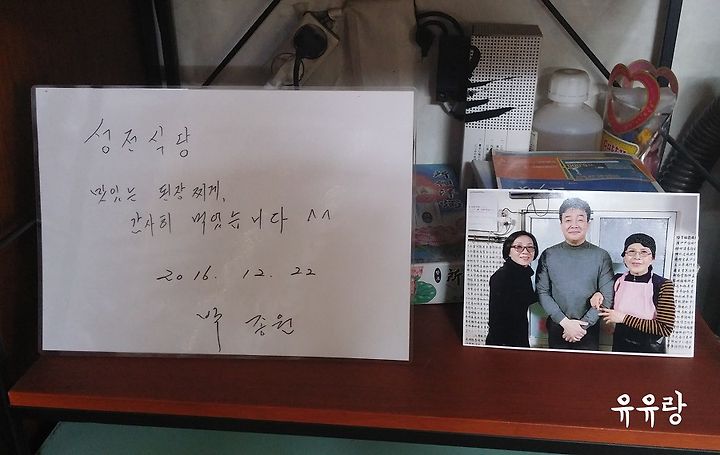 성전식당
맛있는 된장찌게,
감사히 먹었습니다 ^^
2016. 12. 22
백종원
유유랑